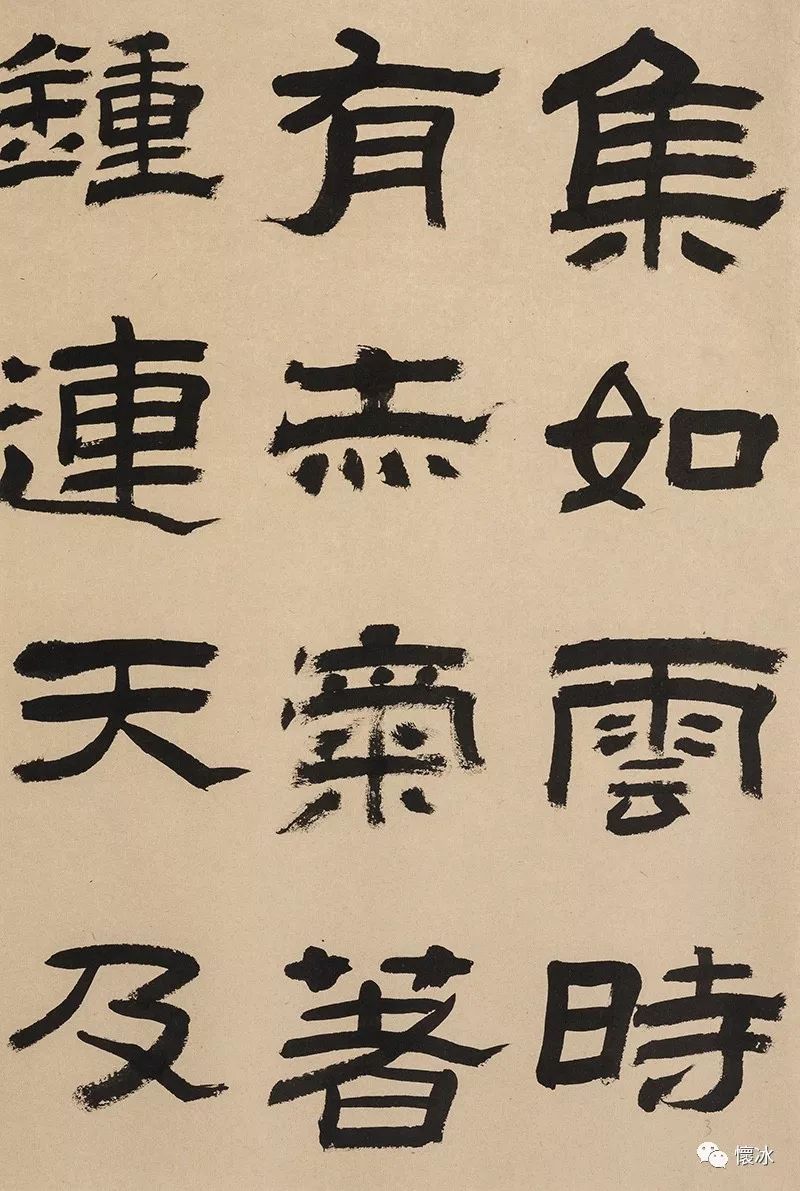 集如雲時
有赤氣著
鍾連天及
懷冰